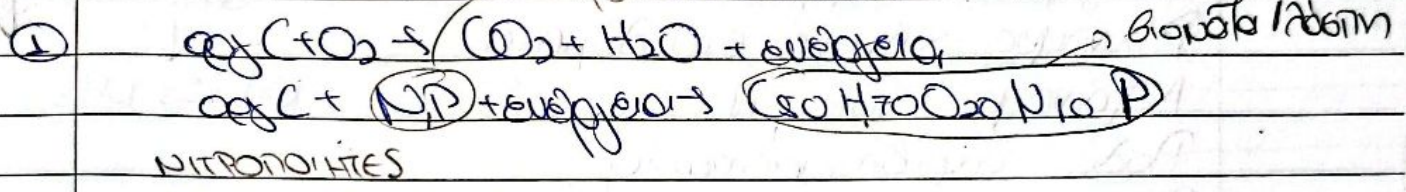 ① οργC + O2 → CO2 + H2O + ενέργεια → βιομάζα / λάσπη
οργC + N,P + ενέργεια → C50H70O20N10P
ΝΙΤΡΟΠΟΙΗΤΕΣ